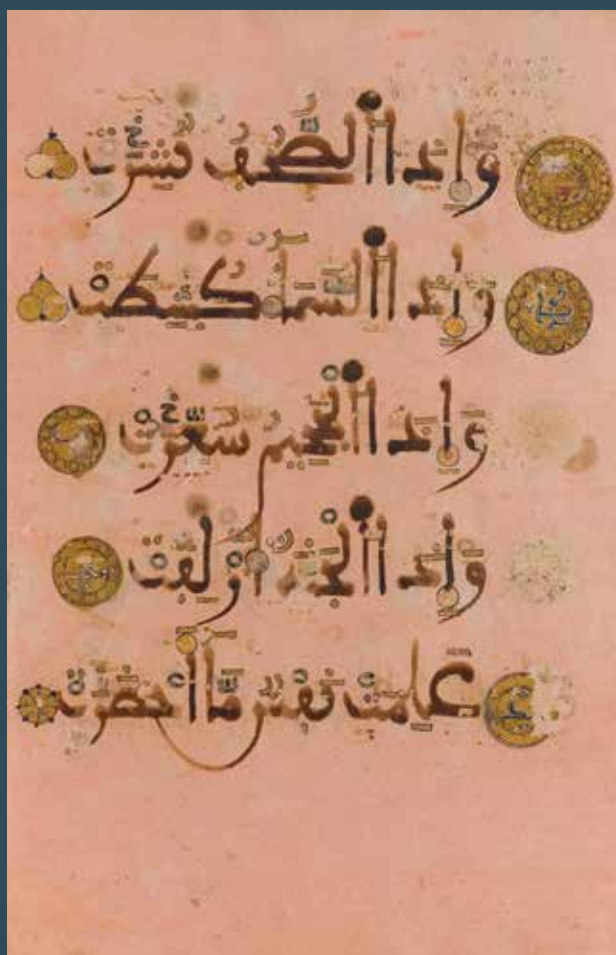 وَإِذَا اَ۬لصُّحُفُ نُشِّرَتْ
وَإِذَا اَ۬لسَّمَآءُ كُشِطَتْ
وَإِذَا اَ۬لْجَحِيمُ سُعِّرَتْ
وَإِذَا اَ۬لْجَنَّةُ أُزْلِفَتْ
عَلِمَتْ نَفْسٌ مَّآ أَحْضَرَتْ